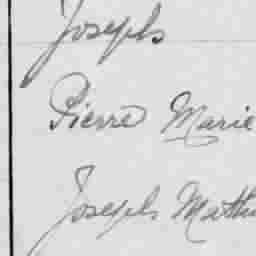 Joseph
Pierre Marie
Joseph Mathu